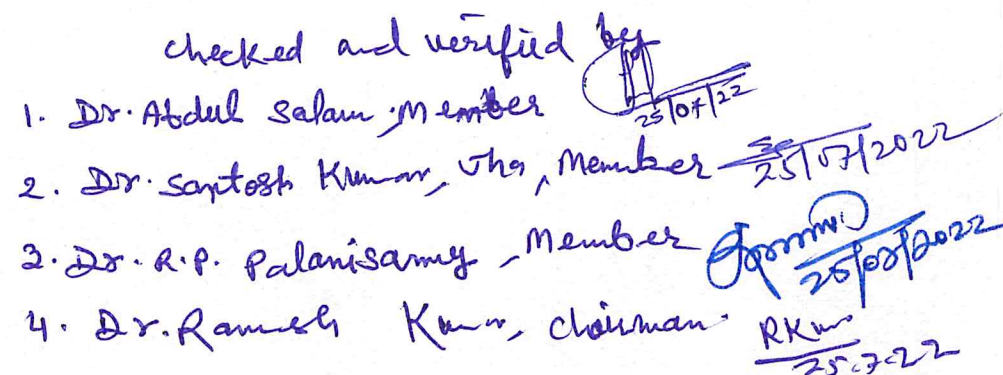 checked and verified by
1. Dr. Abdul Salam, Member 25/07/22
2. Dr. Santosh Kumar, Jha, Member 25/07/2022
3. Dr. R.P. Palanisamy, Member 25/07/2022
4. Dr. Ramesh Kumar, chairman. RKum 25.7.22